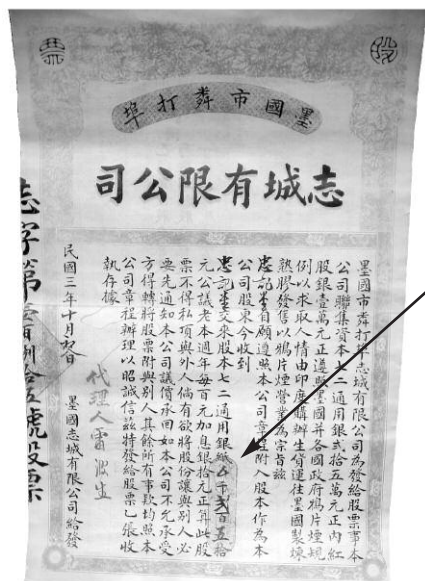 股票
墨國市粦打埠
志城有限公司
墨國市粦打埠志城有限公司為發給股票事本
公司聯集資本七二通用銀弍拾五萬元正內紅
股銀壹萬元正遵照墨國并各國政府鴉片煙規
例以求取人情由印度購辦生貨運往墨國製煉
熟膠發售以鴉片煙營業為宗旨茲
忠記堂自願遵照本公司章程附入股本作為本
公司股東今收到
忠記堂交來股本七二通用銀紙千弍百五拾
元公議老本週年每百元加息銀拾元正算此股
票不得私項與外人倘有欲將股份讓與別人必
要先通知本公司議價承回如本公司不允承受
方得轉將股票附與別人其餘所有事款均照本
公司章程辦理以昭誠信茲特發給股票乙張收
執存據
代理人雷生
民國三年十月初日 墨國志城有限公司給發
志字第壹百捌拾五號股票